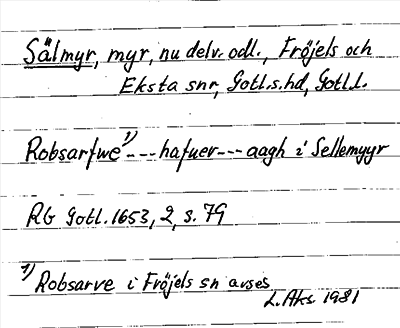 Sälmyr, myr, nu delv. odl., Fröjels och
Eksta snr, Gotl.s.hd, Gotl.l.
Robsarfwe¹⁾---hafuer---aagh i Sellemyyr
RG Gotl. 1653, 2, s. 79
¹⁾ Robsarve i Fröjels sn avses
L. Aks. 1981